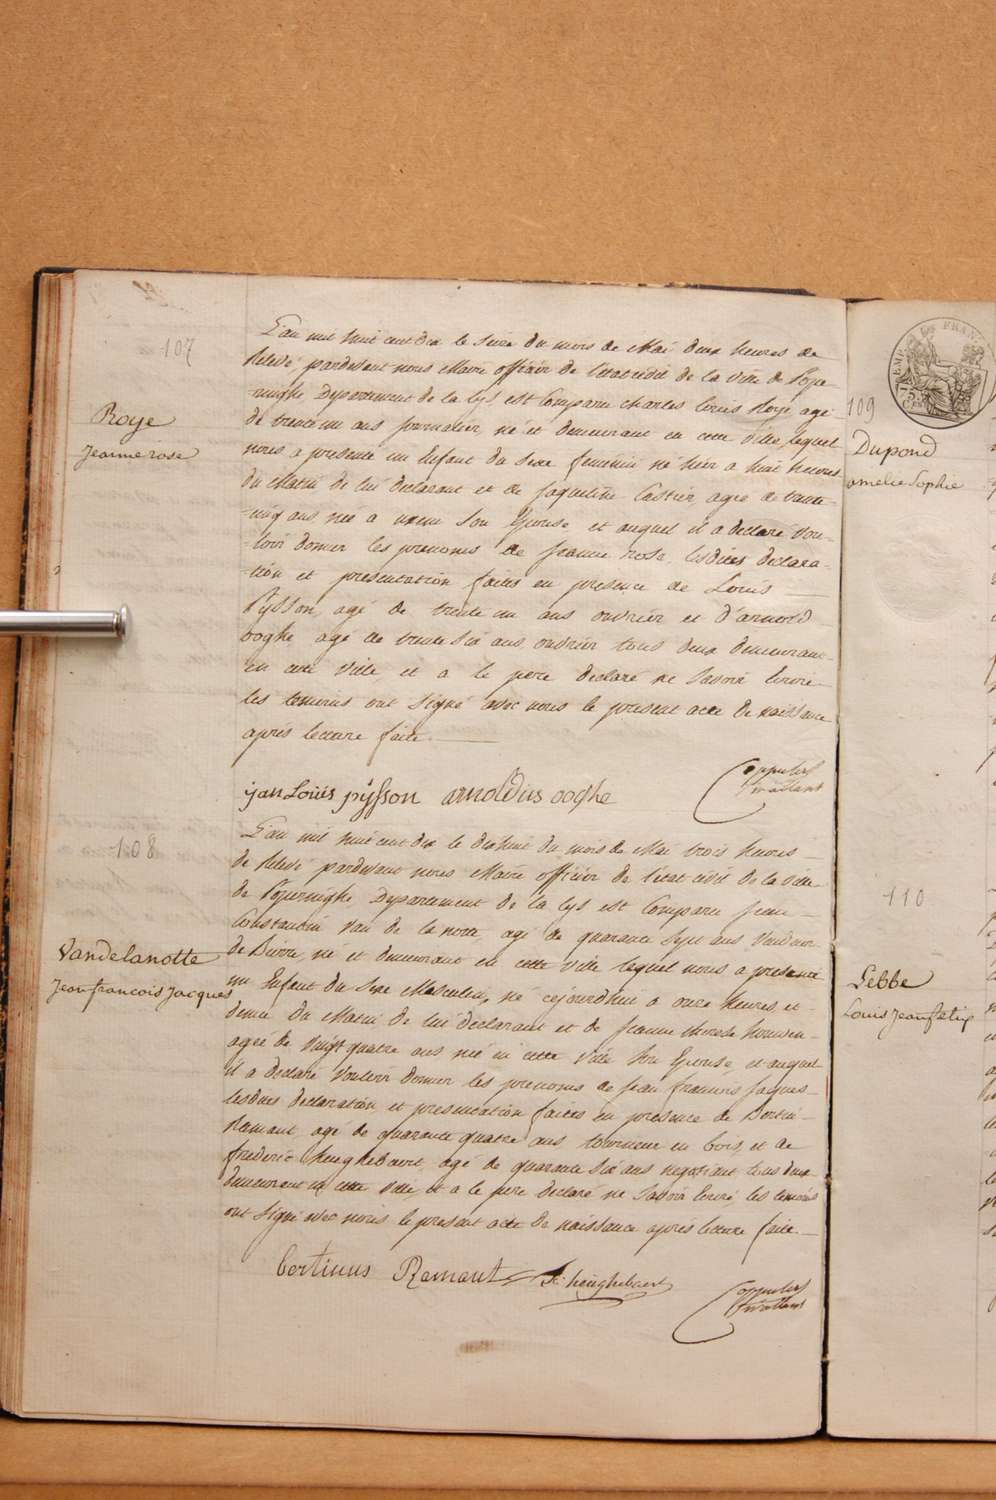 107
Roye
Jeanne rose
L'an mil huit cent dix le seize du mois de Mai deux heures de
Relevé, pardevant nous Maire officier de l'état civil de la ville de Pope
-ringhe Département de la Lys est comparu Charles Louis Roye, agé
de trente un ans journalier, né et demeurant en cette ville, lequel
nous a présenté un Enfant du sexe feminin né hier a huit heures
du Matin de lui déclarant et de Jaqueline Castier, agée de trente
-cinq ans, née a son Epouse, et auquel il a declaré vou-
-loir donner les prenoms de Jeanne rose, lesdites declara-
-tion et presentation faites en presence de Louis
Pysson, agé de trente un ans ouvrier et d'arnold
ooghe agé de trente six ans, ouvrier tous deux demeurant
en cette ville, et a le pere declaré ne savoir Ecrire
les temoins ont signé avec nous le present acte de naissance
aprés lecture faite.
jan Louis pÿsson arnoldus ooghe
108
Vandelanotte
Jean francois Jacques
L'an mil huit cent dix le dix huit du mois de Mai trois heures
de Relevé pardevant nous Maire officier de l'etat civil de la ville
de Poperinghe Département de la Lys est Comparu Jean
Constantin Van de la notte, agé de quarante sept ans Vendeur
de Bierre, né et demeurant en cette ville lequel nous a presenté
un Enfant du Sexe Masculin, né cejourdhui a onze heures et
demie du Matin de lui declarant et de Jeanne therese
agée de vingt quatre ans née en cette ville son Epouse, et auquel
il a declaré vouloir donner les prenoms de Jean francois Jaques
lesdites declaration et presentation faites en presence de Bertin
Ramaut, agé de quarante quatre ans tourneur en bois, et de
frederic henghebaert, agé de quarante six ans negotiant, tous deux
demeurant en cette ville, et a le pere declaré ne savoir Ecrire, les temoins
ont signé avec nous le present acte de naissance aprés lecture faite.
bertinus Ramaut henghebaert
109
Dupond
amelie Sophie
110
Lebbe
Louis Jean felix